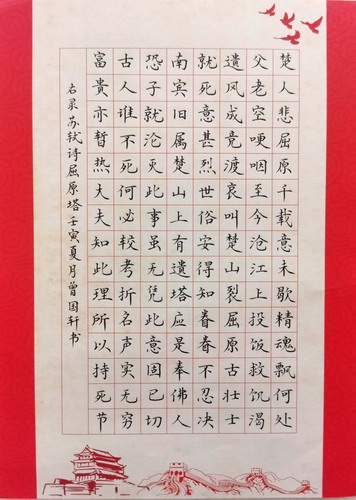 楚人悲屈原千载意未歇精魂飘何处
父老空哽咽至今沧江上投饭救饥渴
遗风成竞渡哀叫楚山裂屈原古壮士
就死意甚烈世俗安得知眷眷不忍决
南宾旧属楚山上有遗塔应是奉佛人
恐子就沦灭此事虽无凭此意固已切
古人谁不死何必较考折名声实无穷
富貴亦暂热大夫知此理所以持死节
右录苏轼诗屈原塔壬寅夏月曾国轩书